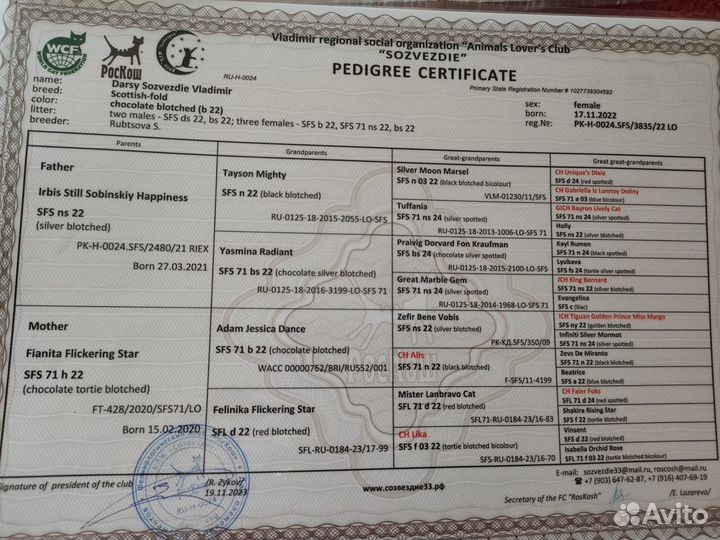 Vladimir regional social organization "Animals Lover's Club
"SOZVEZDIE"
PEDIGREE CERTIFICATE
WCF
WORLD CAT FEDERATION
РосКош
RU-H-0024
Primary State Registration Number # 1027739304592
name: Darsy Sozvezdie Vladimir
breed: Scottish-fold
color: chocolate blotched (b 22)
litter: two males - SFS ds 22, bs 22; three females - SFS b 22, SFS 71 ns 22, bs 22
breeder: Rubtsova S.
sex: female
born: 17.11.2022
reg.№: PK-H-0024.SFS/3835/22 LO
Parents
Grandparents
Great-grandparents
Great great-grandparents
Father
Irbis Still Sobinskiy Happiness
SFS ns 22
(silver blotched)
PK-H-0024.SFS/2480/21 RIEX
Born 27.03.2021
Mother
Fianita Flickering Star
SFS 71 h 22
(chocolate tortie blotched)
FT-428/2020/SFS71/LO
Born 15.02.2020
Tayson Mighty
SFS n 22 (black blotched)
RU-0125-18-2015-2055-LO-SFS
Yasmina Radiant
SFS 71 bs 22 (chocolate silver blotched)
RU-0125-18-2016-3199-LO-SFS 71
Adam Jessica Dance
SFS 71 b 22 (chocolate blotched)
WACC 00000762/BRI/RUS52/001
Felinika Flickering Star
SFL d 22 (red blotched)
SFL-RU-0184-23/17-99
Silver Moon Marsel
SFS n 03 22 (black blotched bicolour)
VLM-01230/11/SFS
Tuffania
SFS 71 ns 24 (silver spotted)
RU-0125-18-2013-1006-LO-SFS 71
Praivig Dorvard Fon Kraufman
SFS bs 24 (chocolate silver spotted)
RU-0125-18-2015-2100-LO-SFS
Great Marble Gem
SFS 71 ns 24 (silver spotted)
RU-0125-18-2014-1968-LO-SFS 71
Zefir Bene Vobis
SFS ns 22 (silver blotched)
РК-КД.SFS/350/09
CH Alis
SFS 71 n 22 (black blotched)
F-SFS/11-4199
Mister Lanbravo Cat
SFL 71 d 22 (red blotched)
SFL71-RU-0184-23/16-83
CH Lika
SFS f 03 22 (tortie blotched bicolour)
SFS-RU-0184-23/16-70
CH Unique's Dixie
SFS d 24 (red spotted)
CH Gabriella Is Lunnoy Doliny
SFS 71 a 03 (blue bicolour)
GICH Bayron Lively Cat
SFS 71 ns 24 (silver spotted)
Holly
SFS ns 22 (silver blotched)
Kayl Rumen
SFS 71 n 24 (black spotted)
Lyubava
SFS fs 24 (tortie silver spotted)
JCH King Bernard
SFS 71 ns 22 (silver blotched)
Evangelina
SFS c (lilac)
ICH Tiguan Golden Prince Miss Margo
SFS ny 22 (golden blotched)
Infiniti Silver Mormot
SFS 71 ns 24 (silver spotted)
Zevs De Miranto
SFS 71 n 22 (black blotched)
Beatrice
SFS a 22 (blue blotched)
CH Faier Foks
SFL 71 d 24 (red spotted)
Shakira Rising Star
SFS f 22 (tortie blotched)
Vinsent
SFS d 22 (red blotched)
Isabella Orchid Rose
SFL 71 f 03 22 (tortie blotched bicolour)
РосКош
Signature of president of the club
/R. Zykov/
19.11.2023
RU-H-0024
www.созвездие33.рф
E-mail: sozvezdie33@mail.ru, roscosh@mail.ru
+7 (903) 647-62-87, +7 (916) 407-69-19
Secretary of the FC "RosKosh"
/E. Lazareva/
Avito